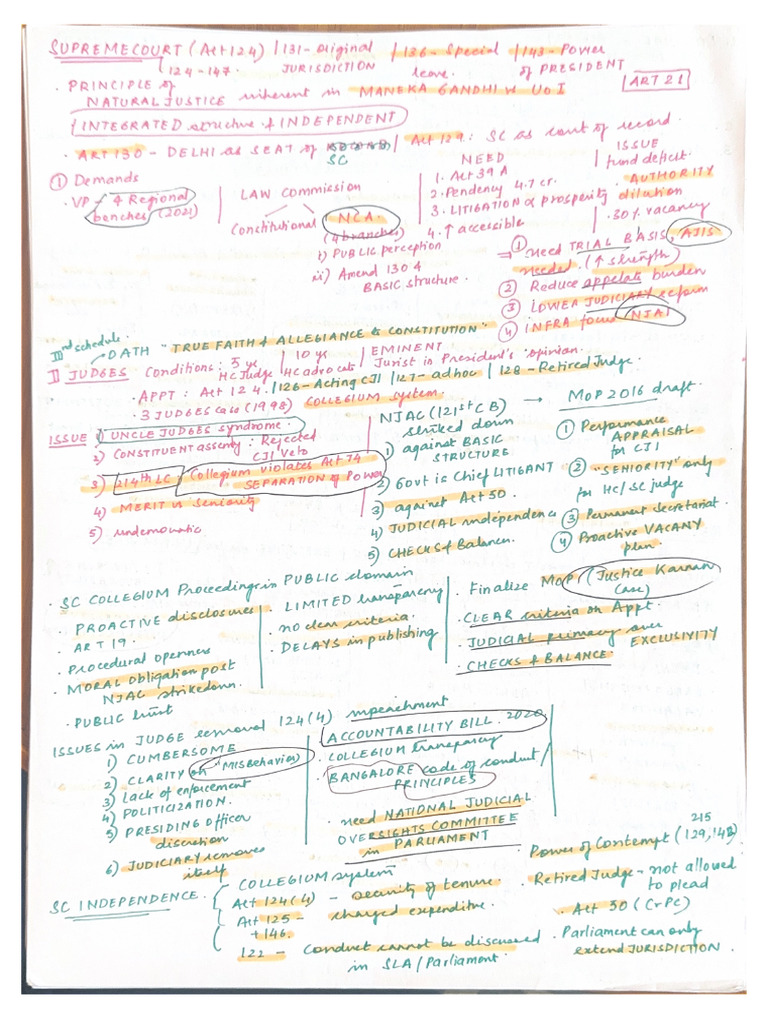 SUPREMECOURT (Art 124) | 131 - Original | 136 - Special | 143 - Power
124-147. JURISDICTION leave. of PRESIDENT
. PRINCIPLE of
NATURAL JUSTICE inherent in MANEKA GANDHI vs UOI ART 21
INTEGRATED structure & INDEPENDENT
. ART 130 - DELHI as SEAT of SC | Art 129: SC as court of record.
① Demands
. VP - 4 Regional
benches (2021)
LAW Commission
Constitutional NCA.
(4 branches)
i) PUBLIC perception
ii) Amend 130 &
BASIC structure.
NEED
1. Art 39 A
2. Pendency 4.7 cr.
3. LITIGATION ∝ prosperity
4. ↑ accessible
ISSUE
fund deficit.
. AUTHORITY
dilution
. 30% vacancy
⇒ ① Need TRIAL BASIS, AJIS
needed. (↑ strength)
② Reduce appelate burden
③ LOWER JUDICIARY reform
④ INFRA focus NJAI
IIIrd schedule.
OATH "TRUE FAITH & ALLEGIANCE to CONSTITUTION"
II JUDGES Conditions: 5 yr HC Judge | 10 yr HC advocate | EMINENT Jurist in President's opinion.
. APPT : Art 124. | 126 - Acting CJI | 127 - adhoc | 128 - Retired Judge.
. 3 JUDGES case (1998) COLLEGIUM system.
ISSUE 1) UNCLE JUDGES syndrome.
2) CONSTITUENT assembly : Rejected
CJI Veto
3) 214th LC : Collegium violates Art 74
SEPARATION of POWER
4) MERIT vs Seniority
5) undemocratic
NJAC (121st CB) → MOP 2016 draft.
striked down
1) against BASIC
STRUCTURE
2) Govt is Chief LITIGANT
3) against Art 50.
4) JUDICIAL independence
5) CHECKS & Balances.
① Performance
APPRAISAL
for CJI
② "SENIORITY" only
for HC/SC judge
③ Permanent Secretariat.
④ Proactive VACANY
plan.
. SC COLLEGIUM Proceedings in PUBLIC domain
. PROACTIVE disclosures
. ART 19.
. Procedural openness
. MORAL obligation post
NJAC strikedown.
. PUBLIC trust
. LIMITED transparency
. no clear criteria.
. DELAYS in publishing
. Finalize MOP (Justice Karnan
Case)
. CLEAR criteria on Appt.
. JUDICIAL primacy over
EXCLUSIVITY
. CHECKS & BALANCE.
ISSUES in JUDGE removal 124(4) impeachment
1) CUMBERSOME
2) CLARITY on "MISBEHAVIOR"
3) Lack of enforcement
4) POLITICIZATION.
5) PRESIDING Officer
discretion
6) JUDICIARY removes
itself
. ACCOUNTABILITY BILL . 2020
. COLLEGIUM transparency
. BANGALORE code of conduct/
PRINCIPLES
. need NATIONAL JUDICIAL
OVERSIGHTS COMMITTEE
in PARLIAMENT
SC INDEPENDENCE.
COLLEGIUM system
Art 124(4) - security of tenure.
Art 125 - charged expenditure.
+ 146.
122 - Conduct cannot be discussed
in SLA / Parliament.
215
. Power of Contempt (129, 142)
. Retired Judge - not allowed
to plead
. Art 50 (CrPC)
. Parliament can only
extend JURISDICTION.